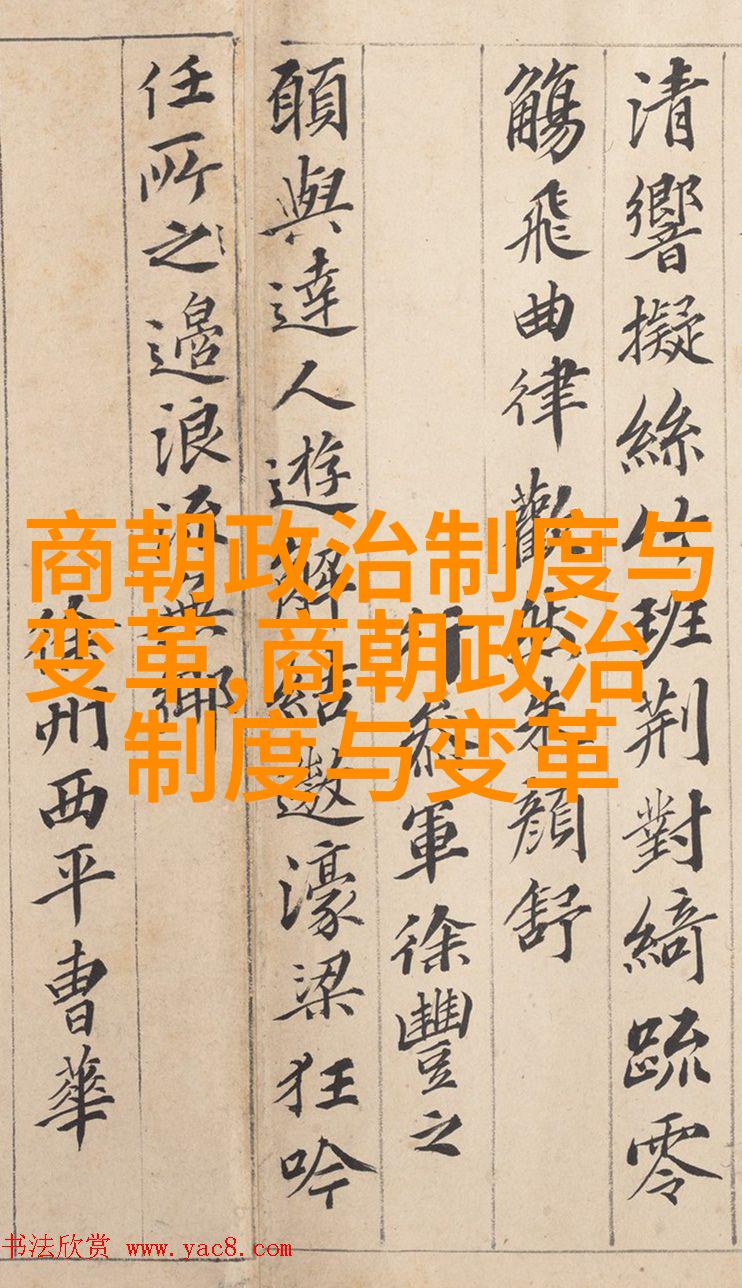 清響擬絲竹班荊對綺疏零
觴飛曲律歡然朱顏舒
行參軍徐豐之
願與達人遊解結遨濠梁狂吟
任所之邊浪流無鄉
徐州西平曹華
商朝政治制度与
变革,商朝政治
制度与变革
书法欣赏 www.yac8.com